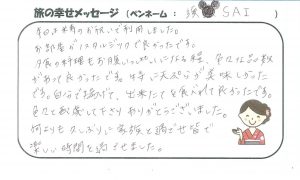 旅の幸せメッセージ(ペンネーム:　SAI　)
今日は米寿のお祝いで利用しました。
お部屋がノスタルジックで良かったです。
夕食の料理もお腹いっぱいになる程、色々な品数
があって良かったです。特に天ぷらが美味しかった
です。自分で揚げて、出来たてを食べれて良かったです。
色々と配慮して下さりありがとうございました。
何よりも久しぶりに家族と過ごせ皆で
楽しい時間を過ごせました。